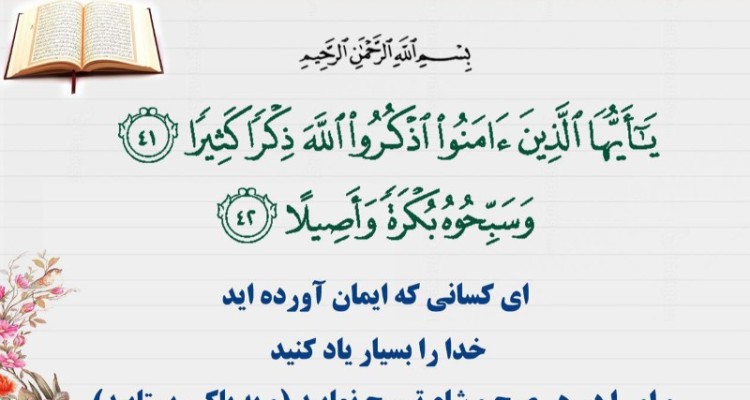 بِسْمِ اللَّهِ الرَّحْمَٰنِ الرَّحِيمِ
يَـٰٓأَيُّهَا ٱلَّذِينَ ءَامَنُوا۟ ٱذْكُرُوا۟ ٱللَّهَ ذِكْرًا كَثِيرًا ٤١
وَسَبِّحُوهُ بُكْرَةً وَأَصِيلًا ٤٢
ای کسانی که ایمان آورده اید
خدا را بسیار یاد کنید